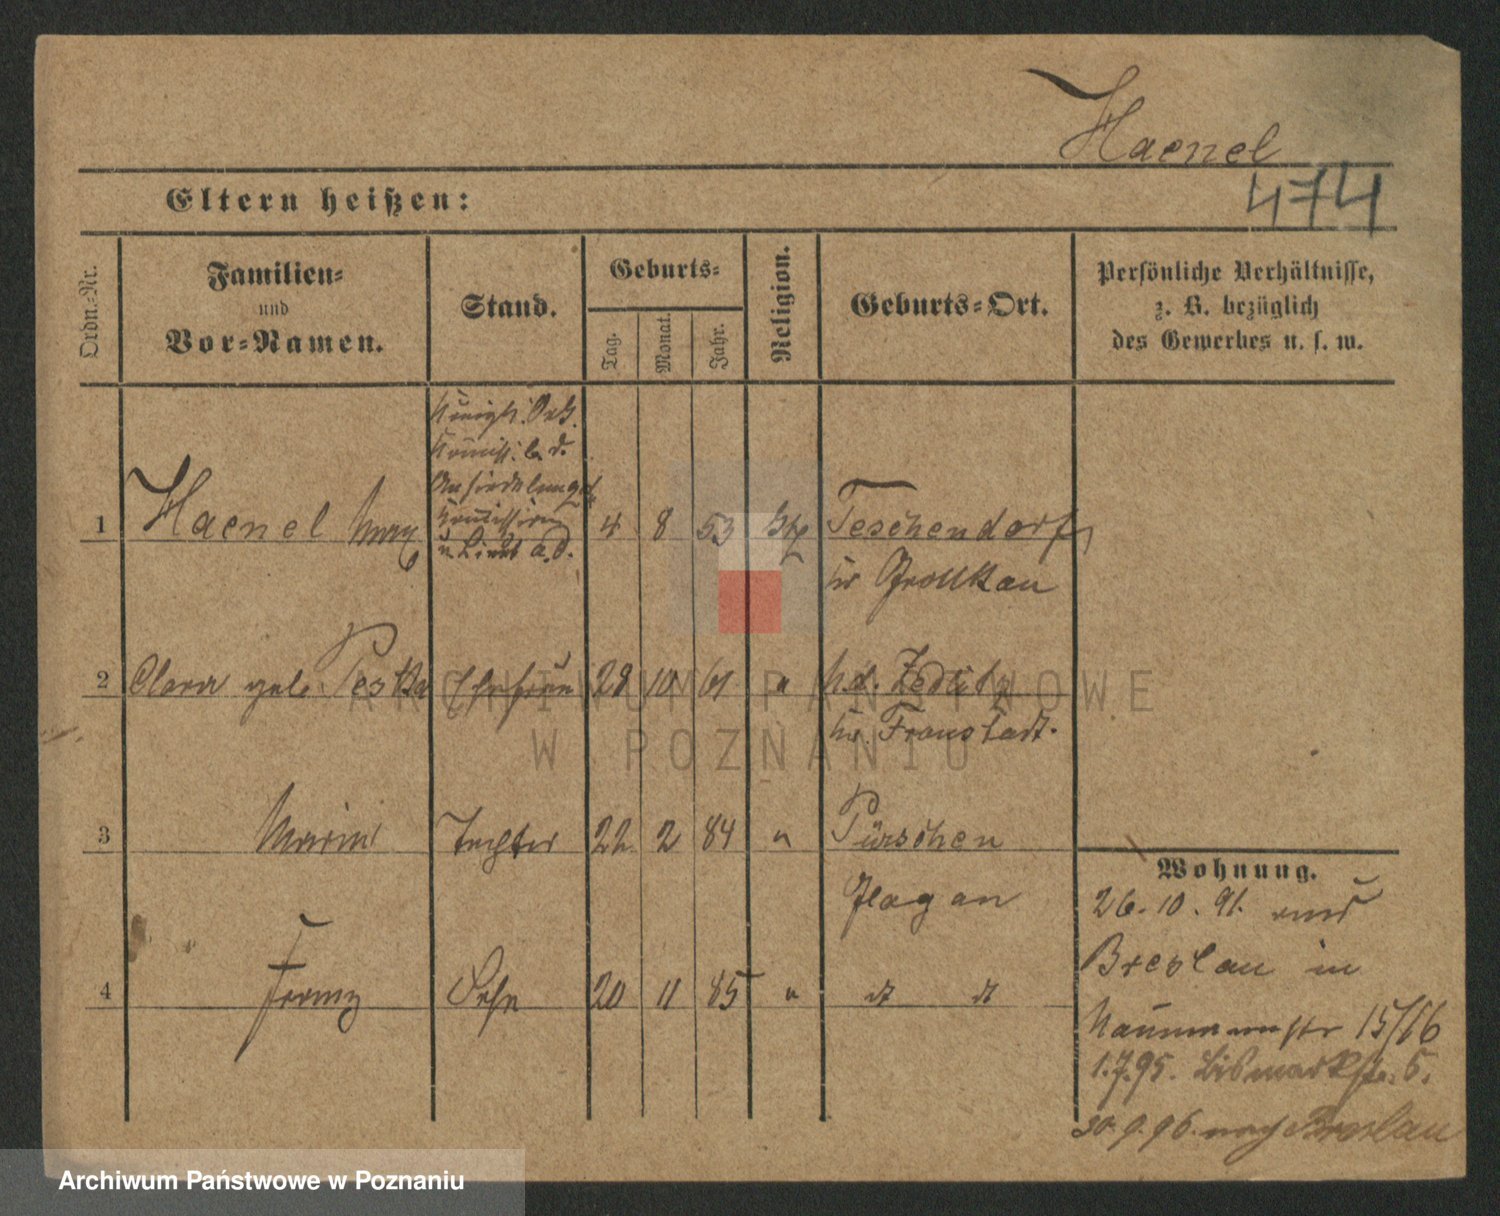 Haenel
474
Eltern heißen:
Ordn.-Nr.
Familien-
und
Vor-Namen.
Stand.
Geburts-
Tag.
Monat.
Jahr.
Religion.
Geburts-Ort.
Persönliche Verhältnisse,
z. B. bezüglich
des Gewerbes u. s. w.
Königl.
Kommiss. b. d.
Ansiedelungs
Kommission
u Lieut a. d.
1 Haenel Max 4 8 53 Teschendorf
Kr Grottkau
2 Clara geb. Peska Ehefrau 28 10 61 " Zedlitz
Kr. Fraustadt.
3 Marie Tochter 22 2 84 " Pürschen
4 Franz Sohn 20 11 85 " dt dt
Wohnung.
26.10.91. aus
Breslau in
Naumannstr 15/16
1.7.95. Bismarckstr. 5.
30.9.96. nach Breslau
ARCHIWUM PAŃSTWOWE
W POZNANIU
Archiwum Państwowe w Poznaniu